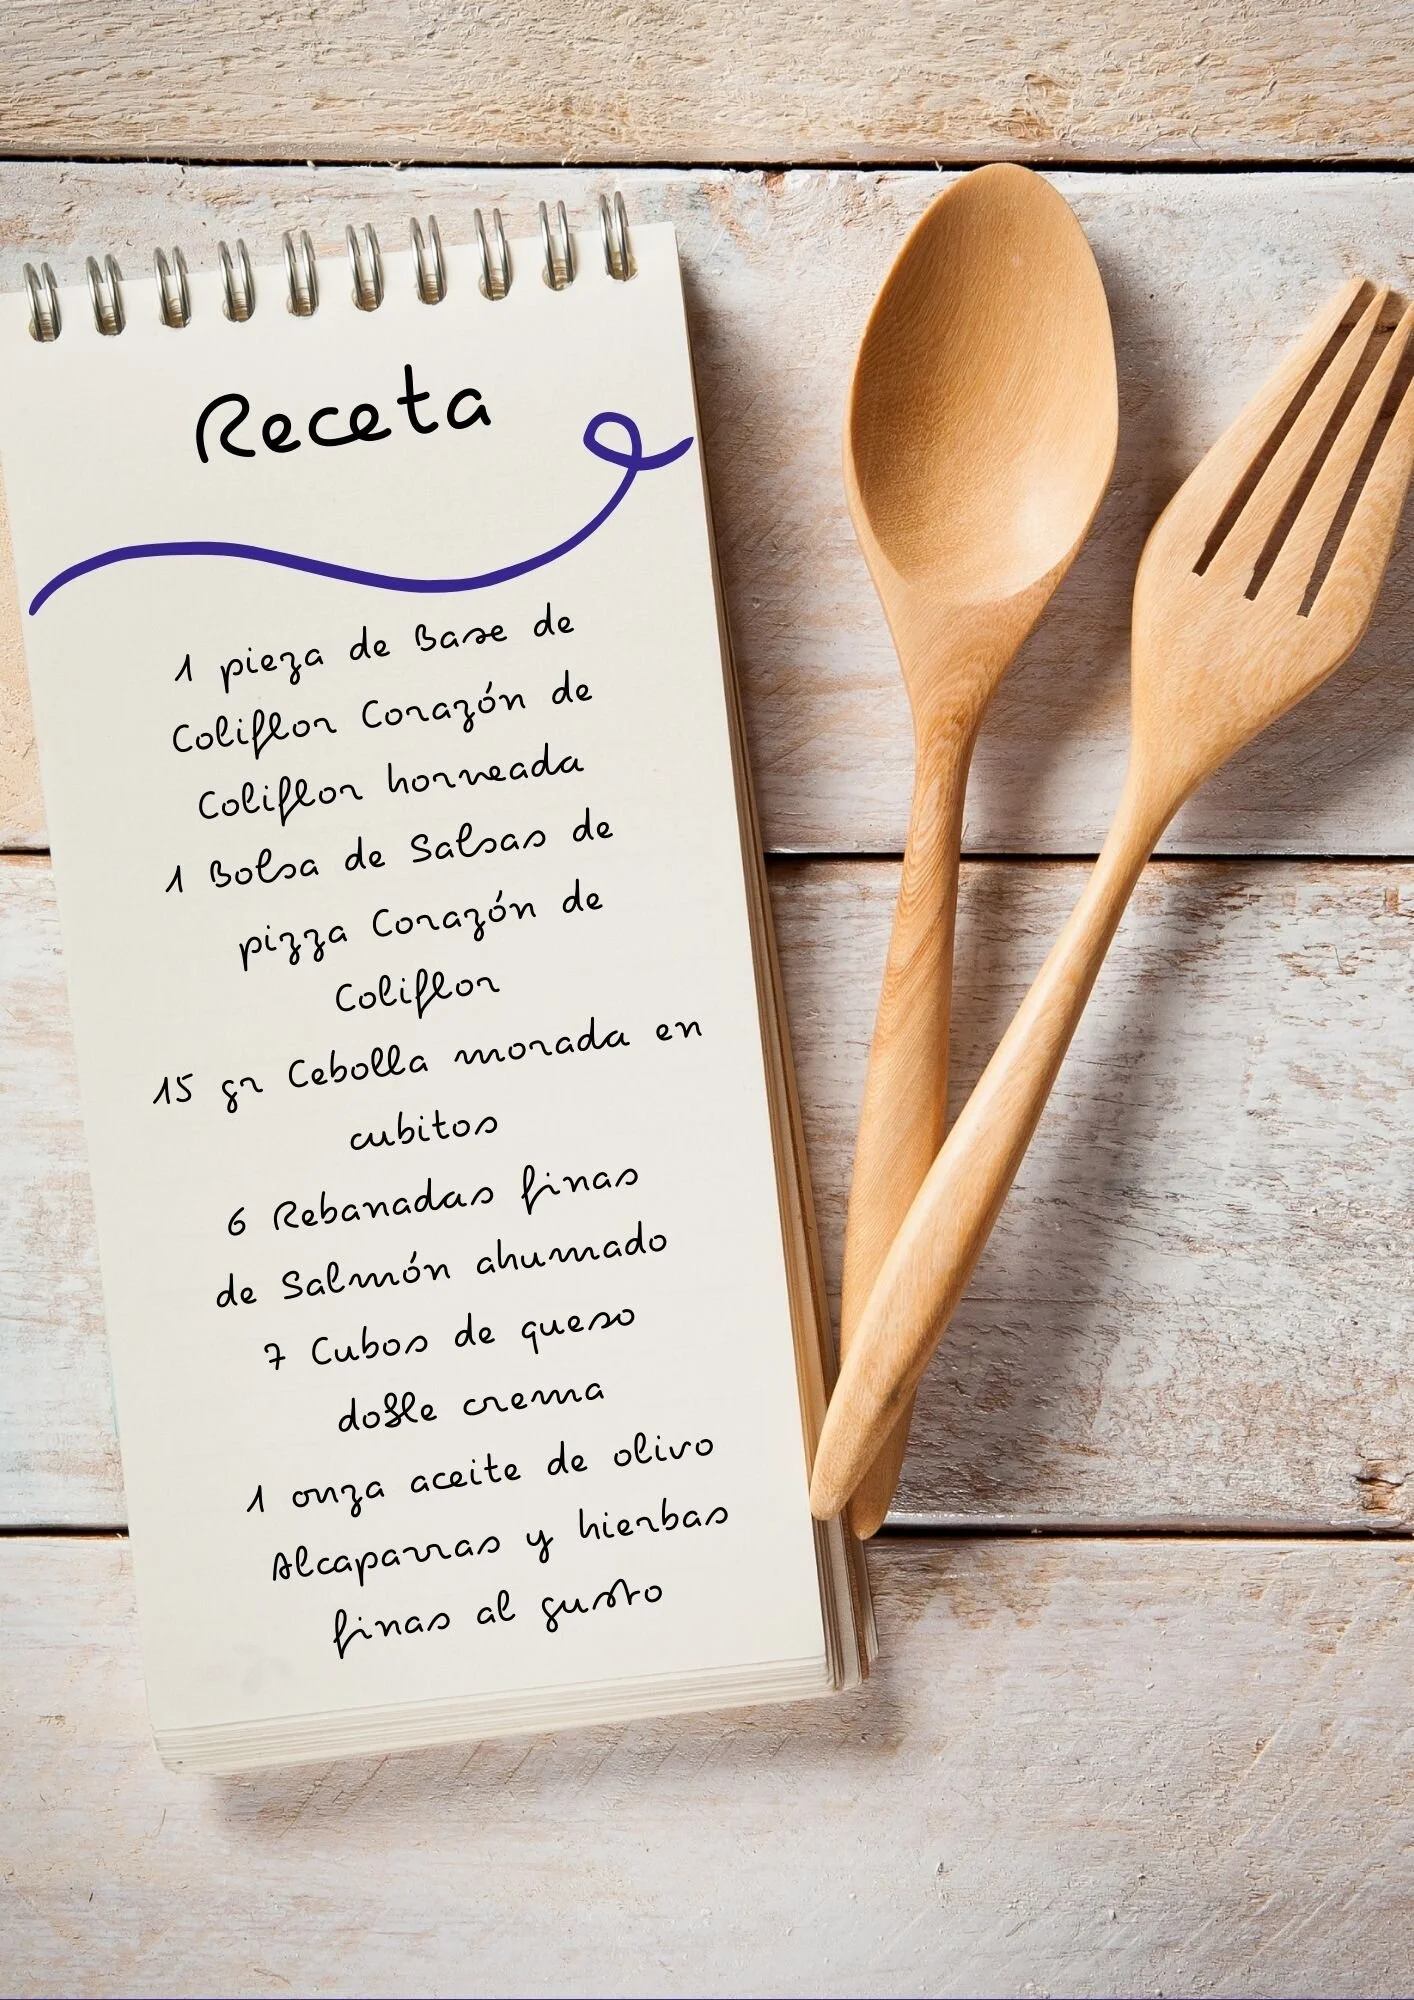 Receta
1 pieza de Base de
Coliflor Corazón de
Coliflor horneada
1 Bolsa de Salsas de
pizza Corazón de
Coliflor
15 gr Cebolla morada en
cubitos
6 Rebanadas finas
de Salmón ahumado
7 Cubos de queso
doble crema
1 onza aceite de olivo
Alcaparras y hierbas
finas al gusto